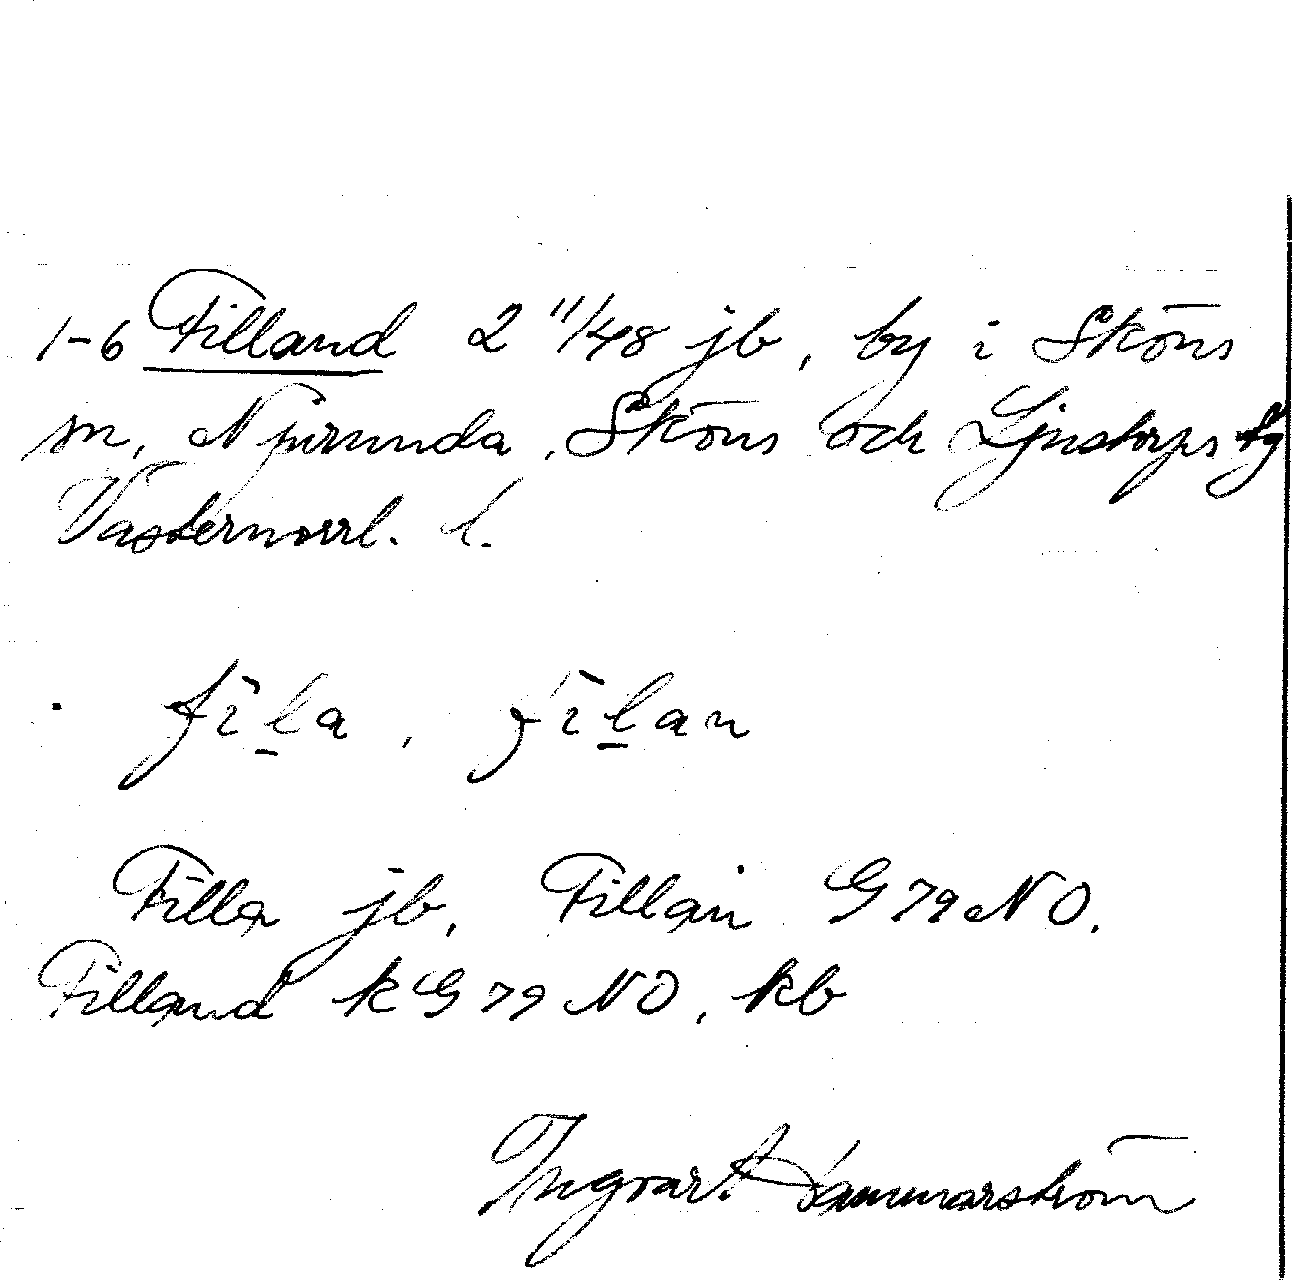 1-6 Filland 2 11/48 jb, by i Sköns
sn, Njurunda, Sköns och Ljustorps tg
Västernorrl. l.
fīl̲a, fīl̲an
Filla jb, Fillan G 79 NO.
Filland k G 79 NO, kb
Ingvar Hammarström